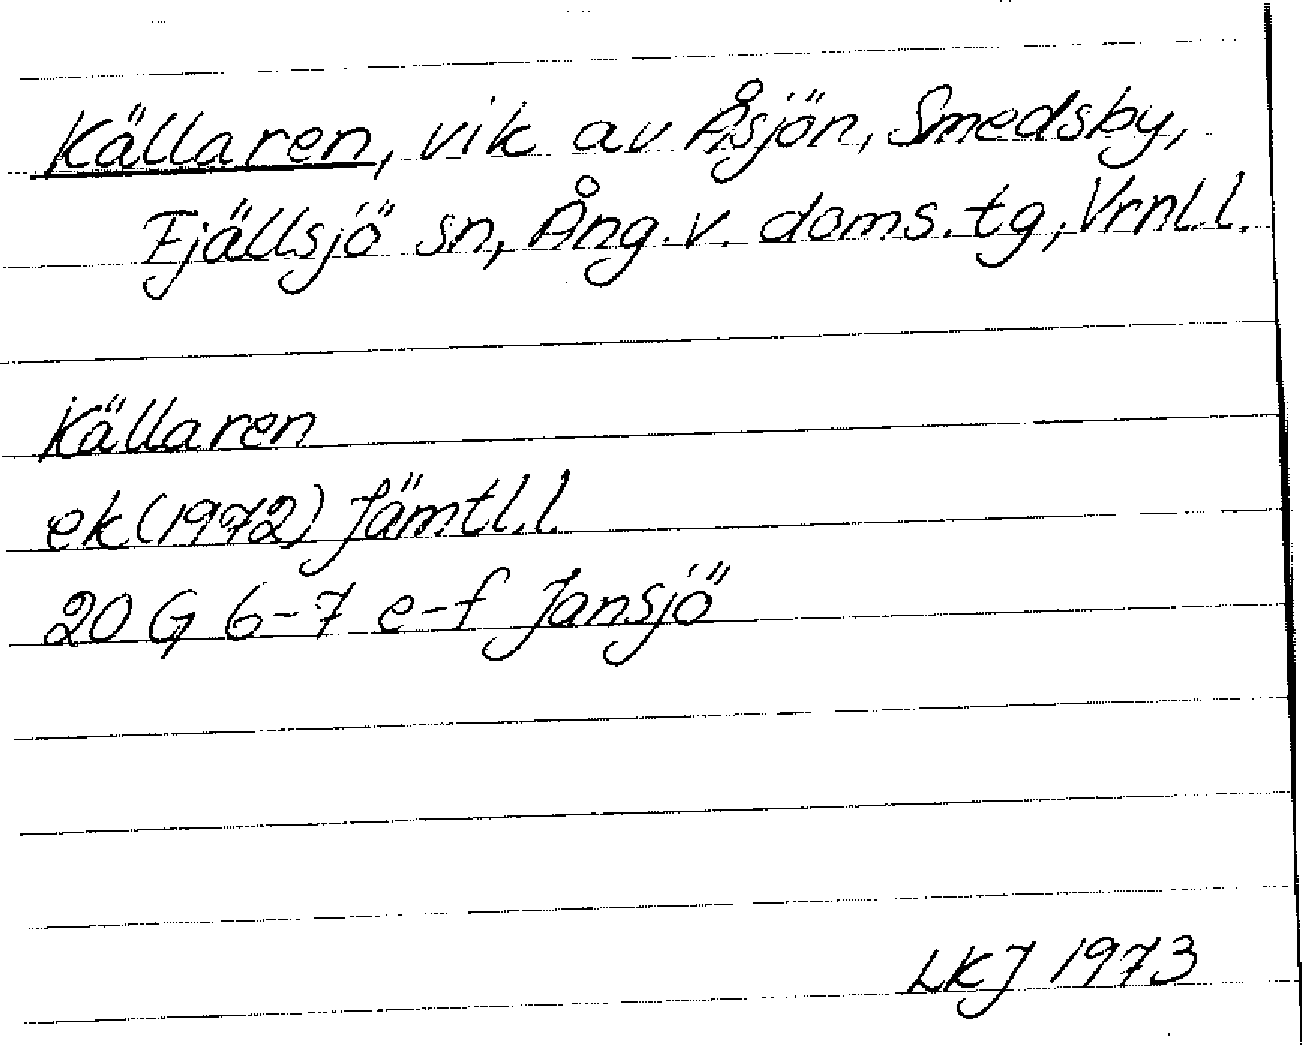 Källaren, vik av Åsjön, Smedsby,
Fjällsjö sn, Ång. v. doms. tg, Vrnl. l.
Källaren
ek (1972) Jämtl. l.
20 G 6-7 e-f Jansjö
LKJ 1973